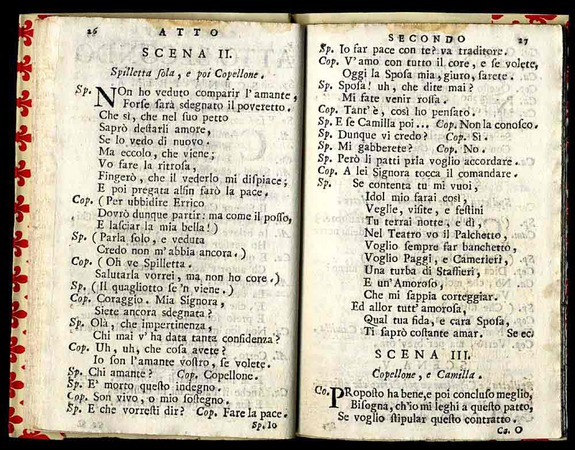 26 ATTO
SCENA II.
Spilletta sola, e poi Copellone.
Sp. NOn ho veduto comparir l'amante,
Forse sarà sdegnato il poveretto.
Che sì, che nel suo petto
Saprò destarli amore,
Se lo vedo di nuovo.
Ma eccolo, che viene;
Vo fare la ritrosa,
Fingerò, che il vederlo mi dispiace;
E poi pregata alfin farò la pace.
Cop. (Per ubbidire Errico
Dovrò dunque partir: ma come il posso,
E lasciar la mia bella!)
Sp. (Parla solo, e veduta
Credo non m'abbia ancora.)
Cop. (Oh ve Spilletta.
Salutarla vorrei, ma non ho core.)
Sp. (Il quagliotto se 'n viene.)
Cop. Coraggio. Mia Signora,
Siete ancora sdegnata?
Sp. Olà, che impertinenza,
Chi mai v'ha data tanta confidenza?
Cop. Uh, uh, che cosa avete?
Io son l'amante vostro, se volete.
Sp. Chi amante? Cop. Copellone.
Sp. E' morto questo indegno.
Cop. Son vivo, o mio sostegno.
Sp. E che vorresti dir? Cop. Fare la pace.
Sp. Io
SECONDO 27
Sp. Io far pace con te? va traditore.
Cop. V'amo con tutto il core, e se volete,
Oggi la Sposa mia, giuro, sarete.
Sp. Sposa! uh, che dite mai?
Mi fate venir rossa.
Cop. Tant'è, così ho pensato.
Sp. E se Camilla poi... Cop. Non la conosco.
Sp. Dunque vi credo? Cop. Sì.
Sp. Mi gabberete? Cop. No.
Sp. Però li patti pria voglio accordare.
Cop. A lei Signora tocca il comandare.
Sp. Se contenta tu mi vuoi,
Idol mio farai così,
Veglie, visite, e festini
Tu terrai notte, e dì,
Nel Teatro vo il Palchetto,
Voglio sempre far banchetto,
Voglio Paggi, e Camerieri,
Una turba di Staffieri,
E un'Amoroso,
Che mi sappia corteggiar.
Ed allor tutt'amorosa,
Qual tua fida, e cara Sposa,
Ti saprò costante amar. Se ec.
SCENA III.
Copellone, e Camilla.
Co. PRoposto ha bene, e poi concluso meglio,
Bisogna, ch'io mi leghi a questo patto,
Se voglio stipular questo contratto.
Ca. O